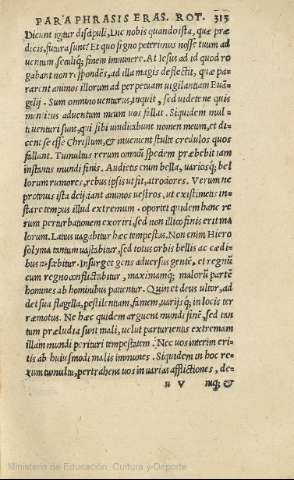 PARAPHRASIS ERAS. ROT. 313
Dicunt igitur discipuli, Dic nobis quando ista, quæ præ
dicis, futura sunt? Et quo signo poterimus nosse tuum ad
uentum seculiq; finem imminere. At Iesus ad id quod ro
gabant non respondēs, ad illa magis deflectit, quæ pa-
rarent animos illorum ad perpetuam uigilantiam Euā-
gelij. Sum omnino uenturus, inquit, sed uidete ne quis
inanitus aduentum meum uos fallat. Siquidem mul-
ti uenturi sunt, qui sibi uindicabunt nomen meum, et di-
cent se esse Christum, et inuenient stulte credulos quos
fallant. Tumultus rerum omniū speciem præbebit iam
instantis mundi finis. Audietis enim bella, uariosq; bel
lorum rumores, rebus ipsis ut fit, atrociores. Verum ne
protinus ista deijciant animos uestros, ut existimetis in-
stare tempus illud extremum. oportet quidem hanc re
rum perturbationem exoriri, sed non illico finis erit ma
lorum. Latius uagabitur hæc tempestas. Non enim Hiero
solyma tantum uastabitur, sed totus orbis bellis ac cædi-
bus
Insurget gens aduersus gentē, et regnū
cum regno conflictabitur, maximamq; malorū partē
homines ab hominibus patientur. Quin et deus ultor, ad
det sua flagella, pestilentiam, famem, uarijsq; in locis ter
ræmotus. Ne hæc quidem arguent mundi finē, sed tan
tum præludia sunt mali, uelut parturientis extremam
illam mundi perituri tempestatem. Nec uos interim eri-
tis ab huiusmodi malis immunes. Siquidem in hoc re-
rum tumultu, pertrahent uos in uarias afflictiones, de-
nV nq; &
Ministerio de Educación, Cultura y Deporte